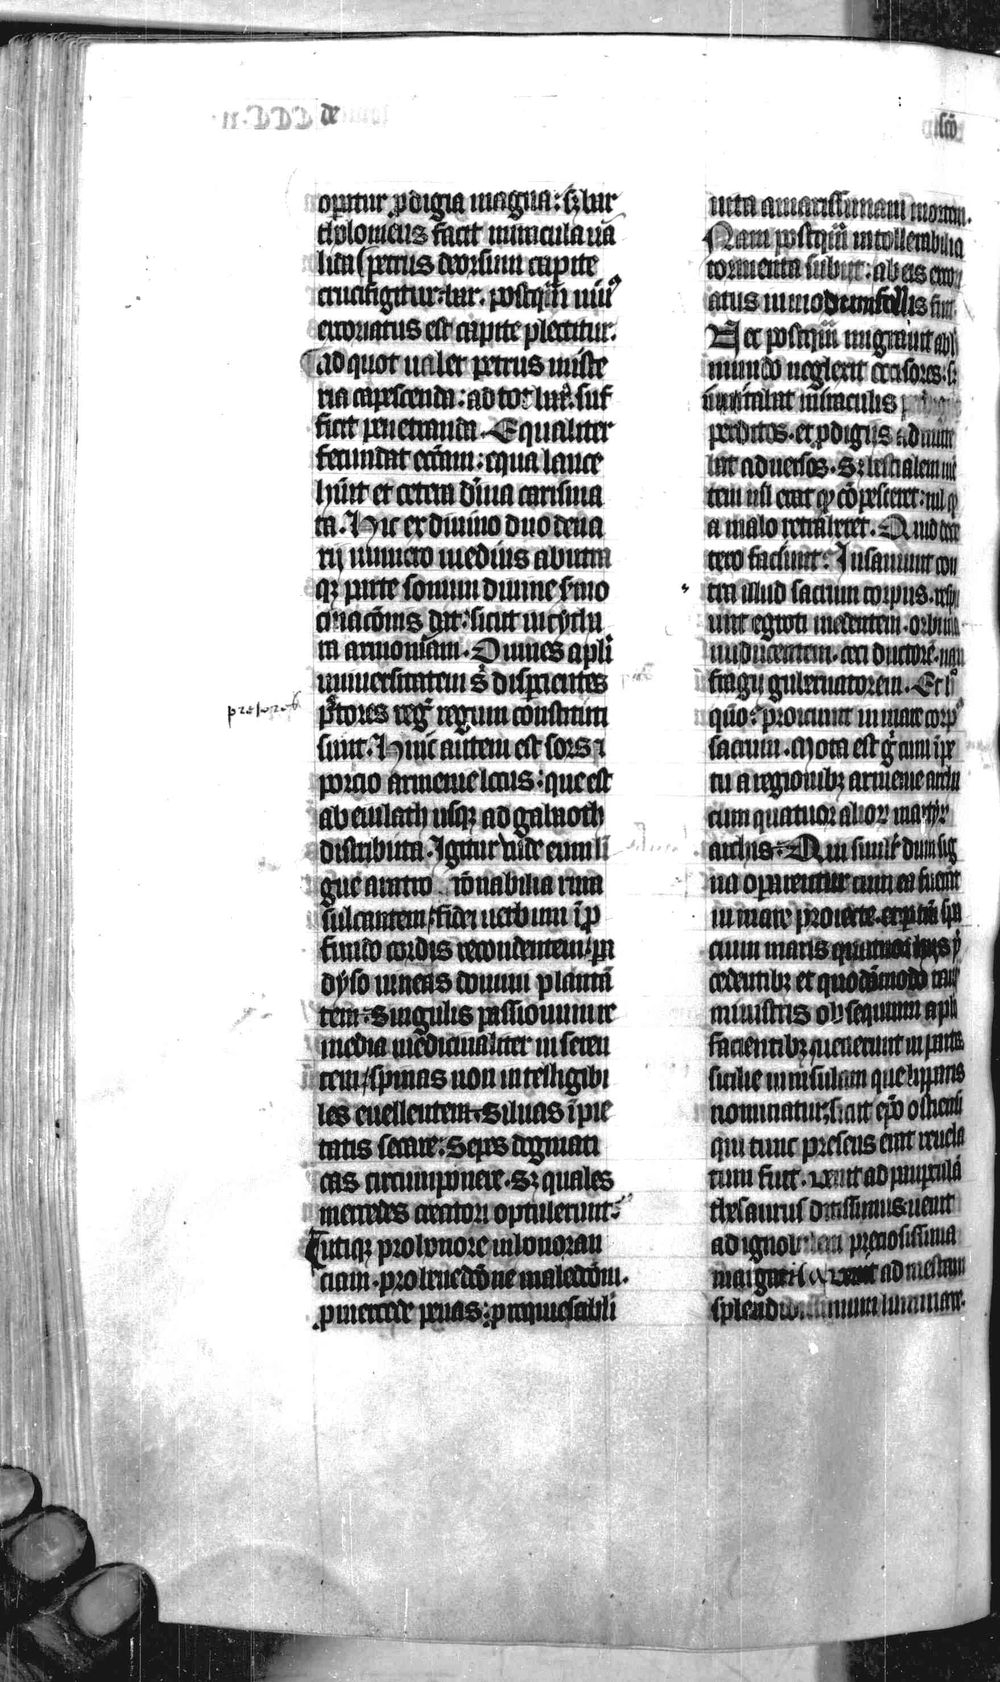 de
scō
opatur pdigia magna: sz bar
tholomeus facit miracula ua
lida petrus deorsum capite
crucifigitur: bar. postqm uiuꝰ
excoriatus est capite plectitur.
ad quot ualet petrus miste
ria capescenda: ad tot bar. suf
ficit penetranda. Equaliter
fecundat ecciam: equa lance
hūit et cetera diuina carisma
ta. Hic ex diuino duodena
rij numero medius ab utra
qz parte sonum diuine smo
cinacōnis dat: sicut in cytha
ra armoniam. Omnes apli
uniuersitatem s disparientes
pastores reg regum constituti
sunt. Huic autem est sors ⁊
porcio armenie locus: que est
ab euilath usqz ad gabaoth
distributa. Igitur uide eum li
gue aratro rōnabilia rura
sulcantem, fidei uerbum i p
fundo cordis recondentem, pa
dyso uineas domini plantā
tem: Singulis passionum re
media medicinaliter inseren
tem, spinas non intelligibi
les euellentem. Siluas ipie
tatis secare: Sepes dogmati
cas circumponere. Sz quales
mercedes creatori optulerunt:
Utiqz pro honore inhonoran
ciam. pro benedcōne maledcōm.
p mercede penas: p requie stabili
preiores
uita amarissimam mortem.
Nam postqm intollerabilia
tormenta subiit: ab eis excori
atus in modum follis fuit.
Et postqm migrauit ab h
mundo neglexit occisores: s
inuitabat miraculis
perditos. et pdigijs ad inuite
bat aduersos. Sz bestialem mē
tem nil erat qd cōpesceret: nil qd
a malo retraheret. Quid dece
tero faciunt? Insaniunt con
tra illud sacrum corpus. respu
unt egroti medentem. orbi ma
nuducentem. ceci ductorē. nau
fragij gubernatorem. Et h
quō: proiciunt in mare corpꝰ
sacrum. Mota est g cum ipe
tu a regionibz armenie archa
cum quatuor alior martyr
archis. Qui simil dum sig
na operentur cum ea fuerint
in mare proiecte. et p tm spa
cium maris quatuor hijs p
cedentibz et quodāmodo tanqm
ministris obsequium apli
facientibz, uenerunt in partes
sicilie in insulam que lipparis
nominatur, sicut epō ostiensi
qui tunc presens erat reuela
tum fuit. uenit ad pauperculā
thesaurus ditissimus, uenit
ad ignobilem preciosissima
margarita, uenit ad mestam
splendidissimum luminare.